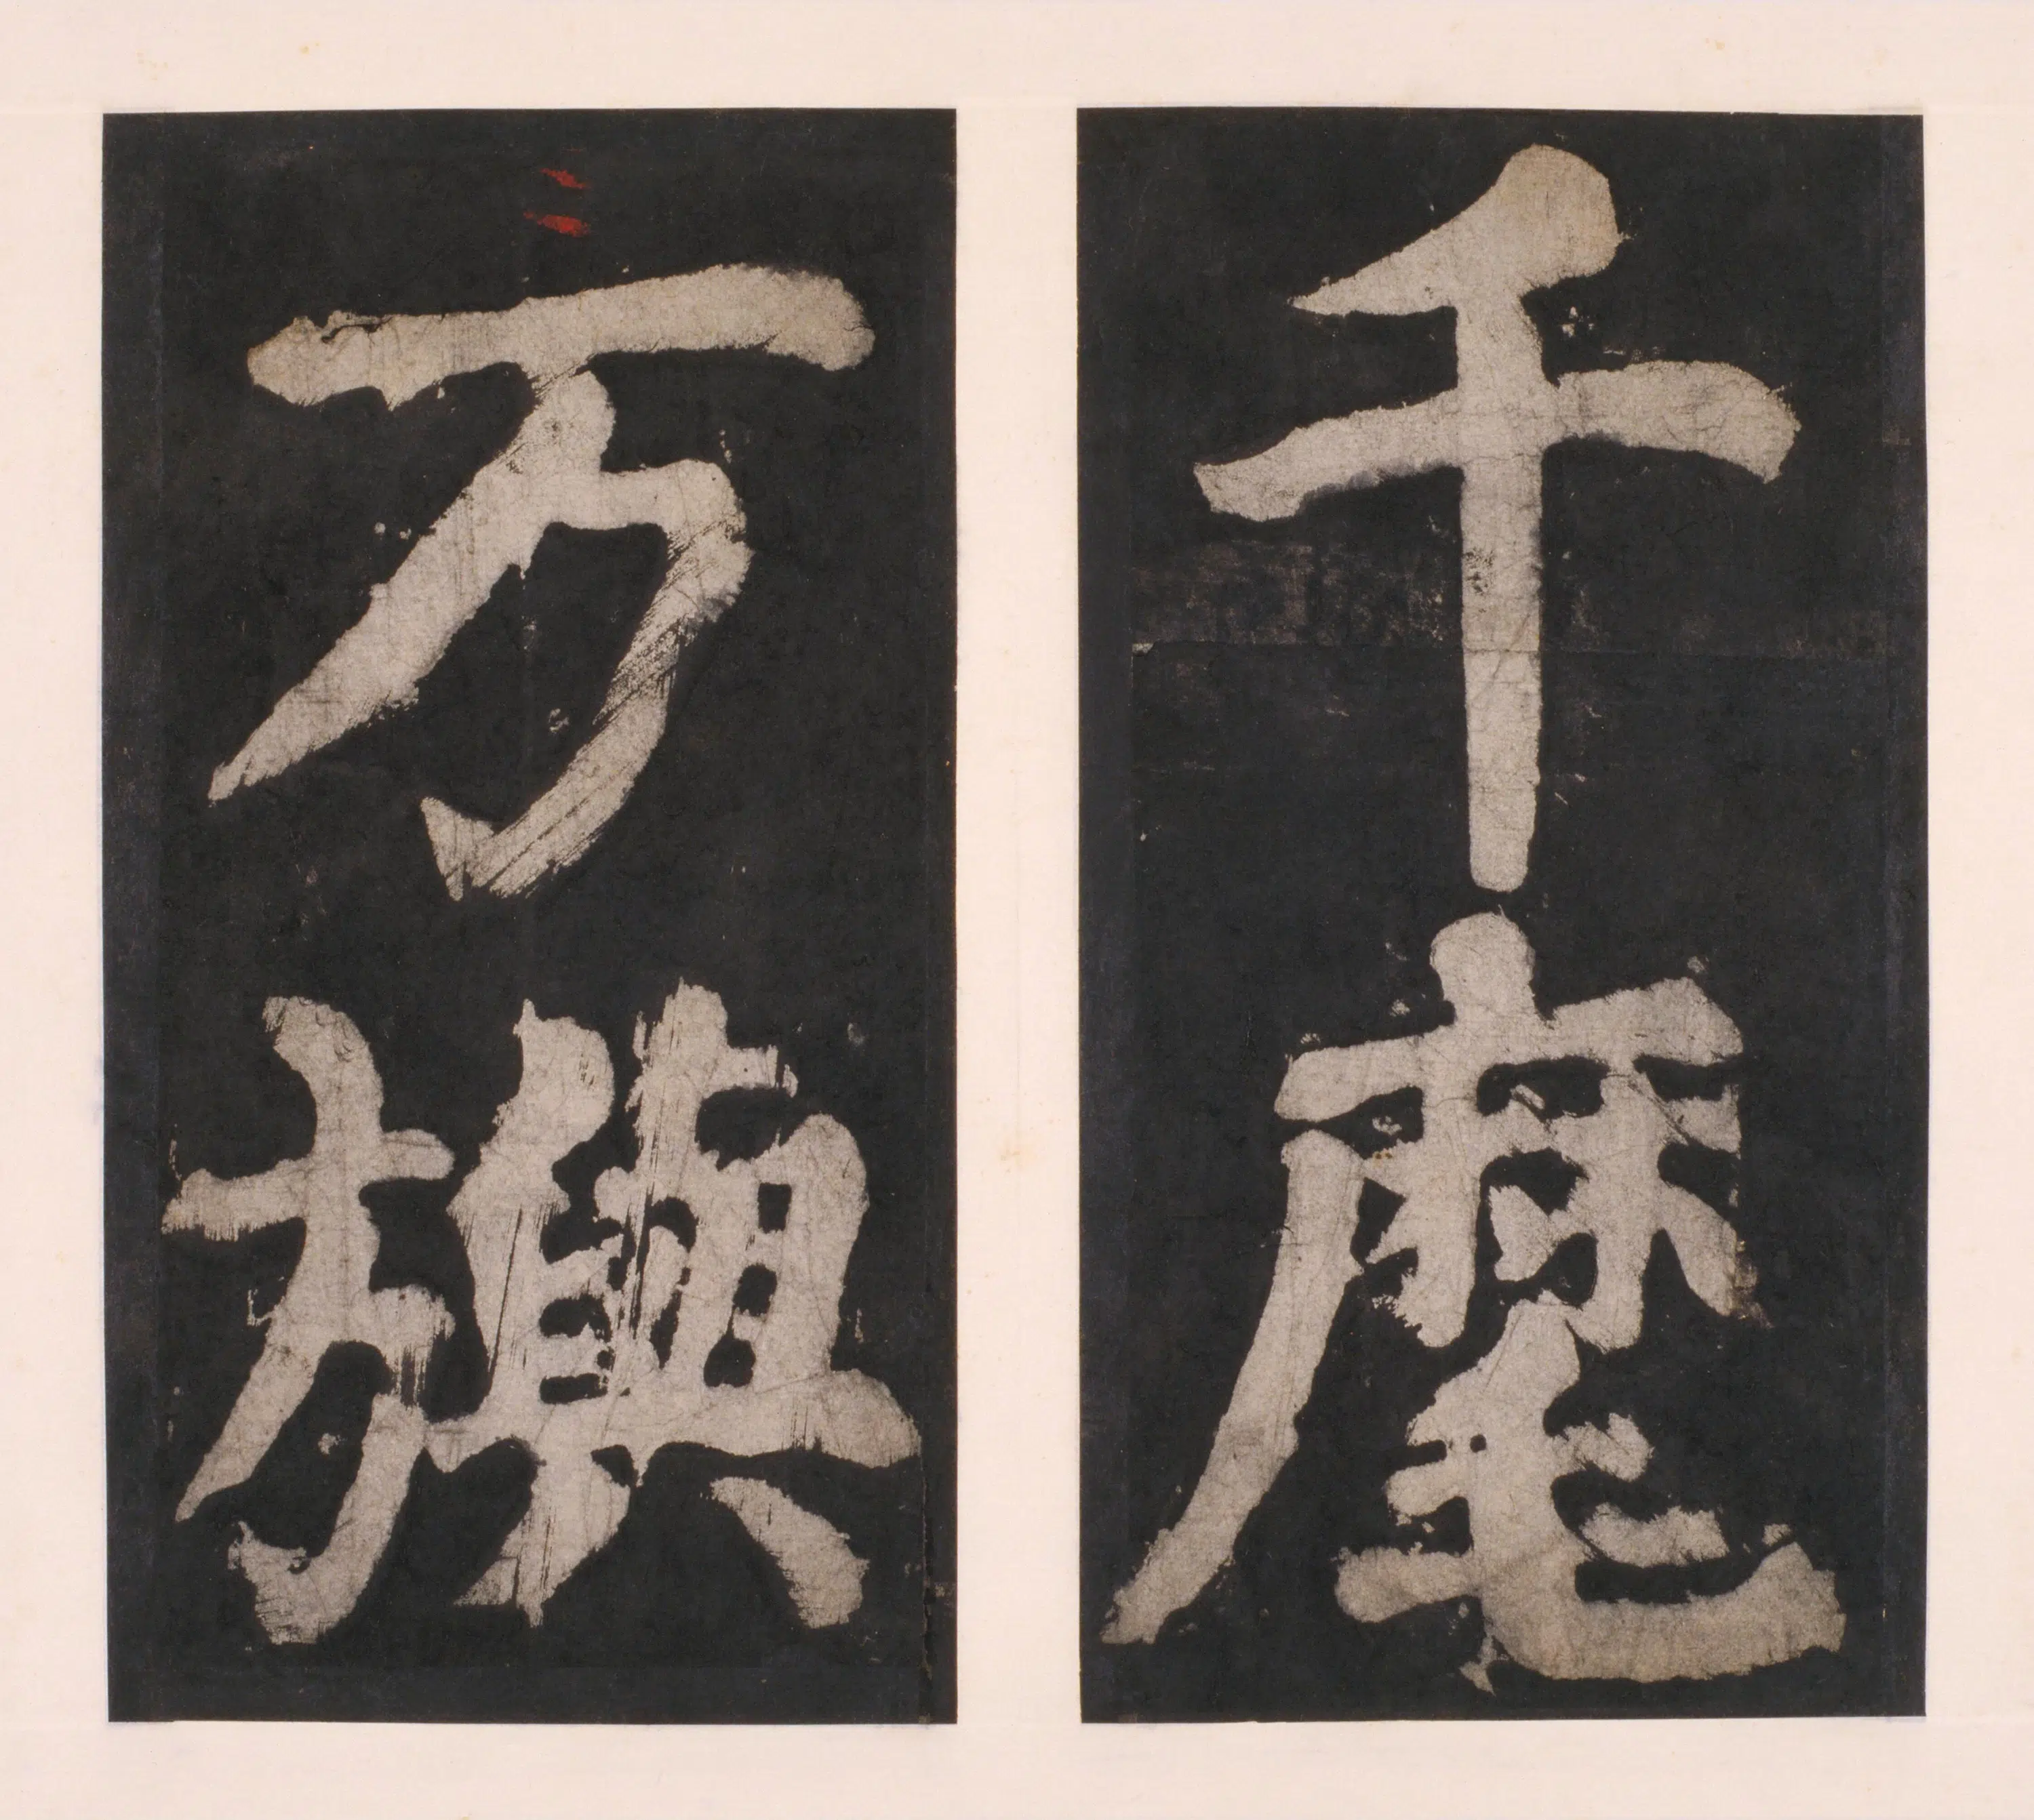 千麾
万旟